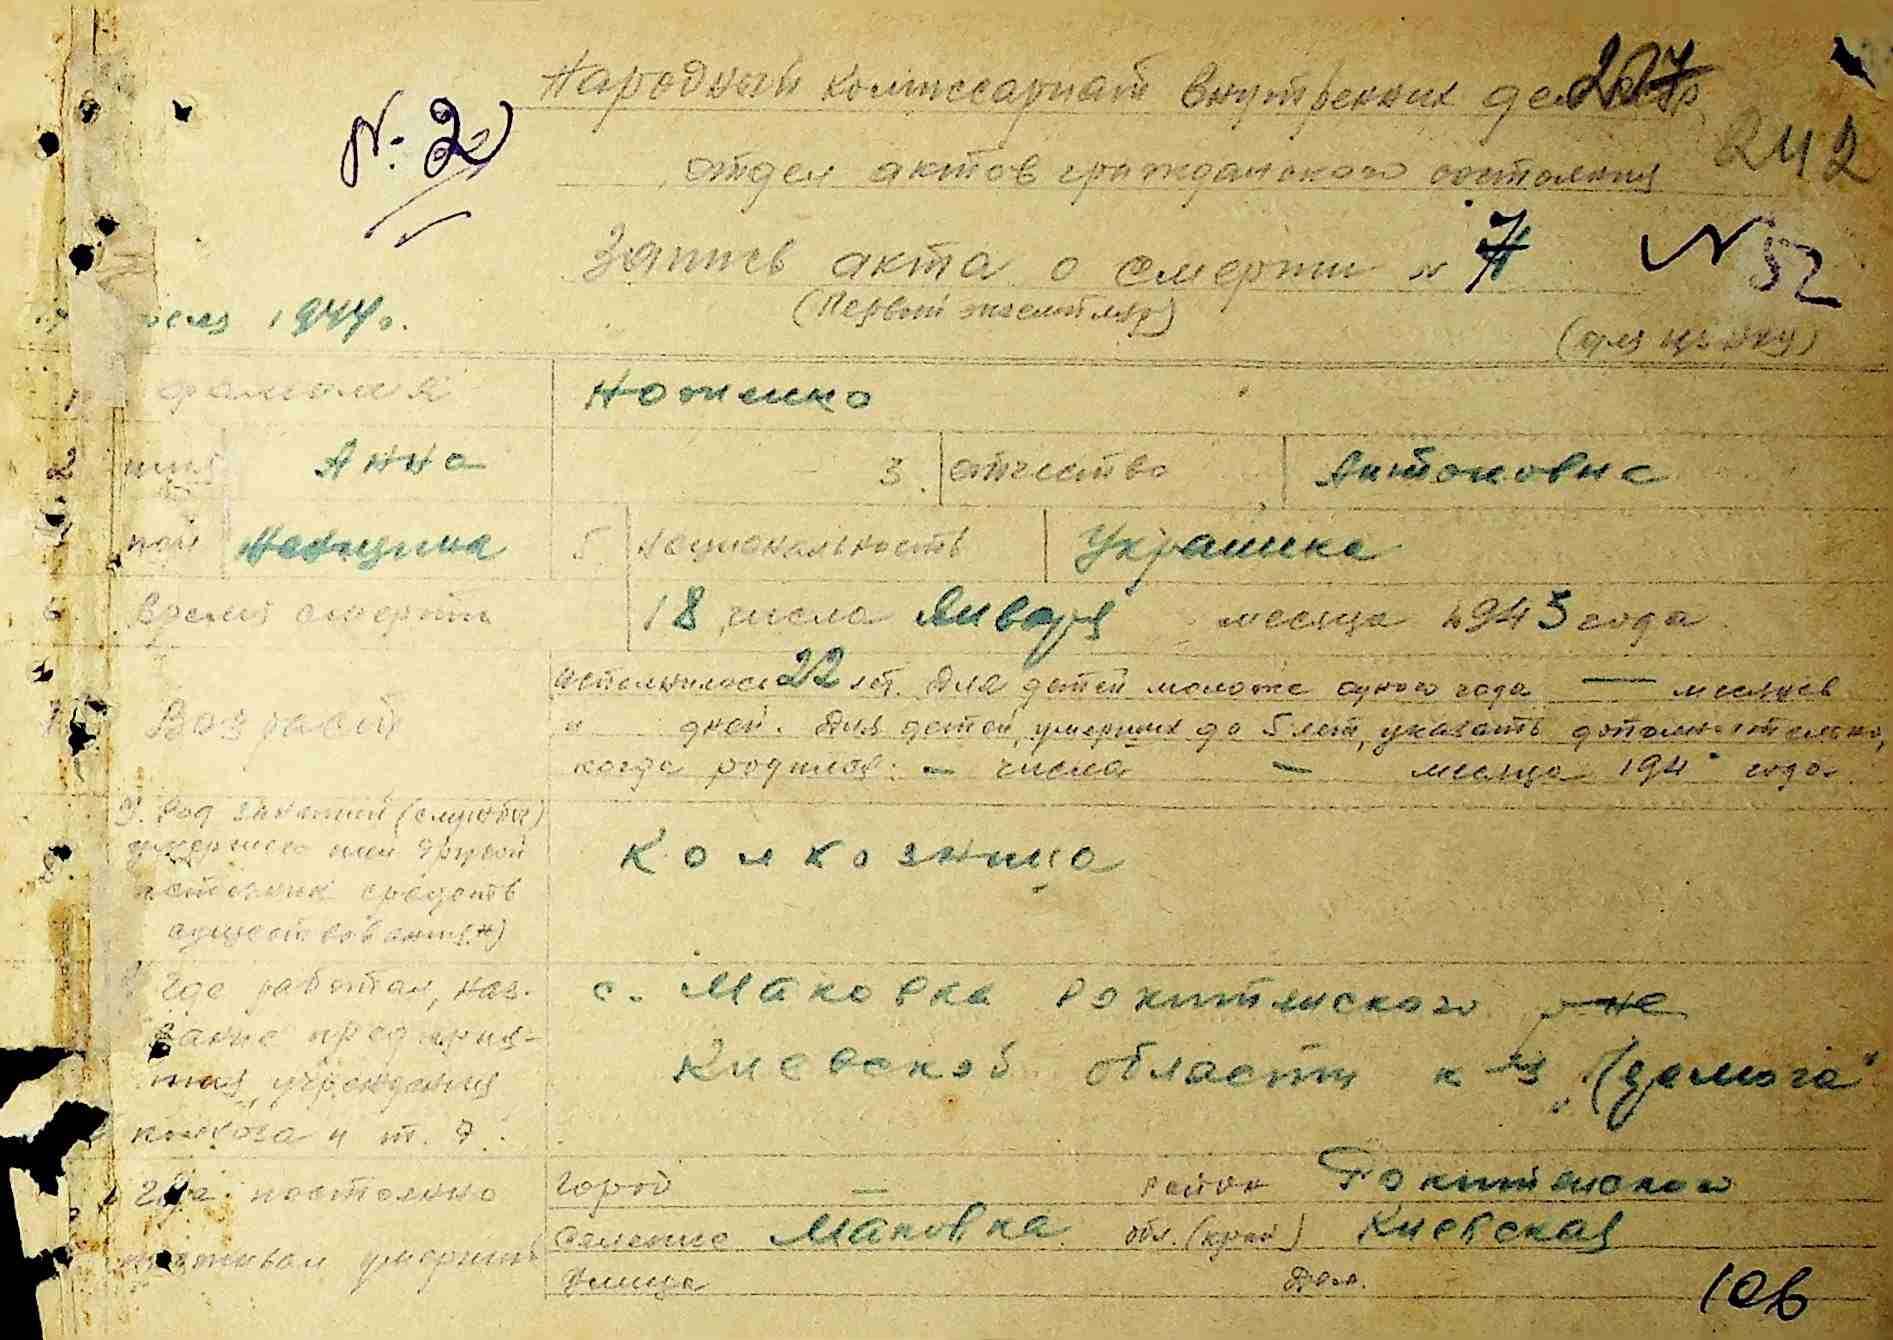 Народный комиссариат внутренних дел 207
242
отдел актов гражданского состояния
№ 2
Запись акта о смерти № 7
N 52
(Первый экземпляр)
1944 г.
(для ЦУНХУ)
1. фамилия Ноженко
2 имя Анна 3. отчество Антоновна
пол Женщина 5. национальность Украинка
6 Время смерти 18 числа Января месяца 1943 года
исполнилось 22 лет. Для детей моложе одного года — месяцев
7 Возраст
и дней. Для детей, умерших до 5 лет, указать дополнительно,
когда родился: - числа - месяца 194 года
8. Род занятий (службы)
умершего или другой
источник средств
существования)
Колхозница
Где работал, наз-
вание предприя-
тия, учреждения
колхоза и т. д.
с. Маковка Рокитянского р-на
Киевской области к-з
Где постоянно
проживал умерший
Город — район Рокитянского
Селение Маковка обл. (край) Киевская
Улица Дом.
106